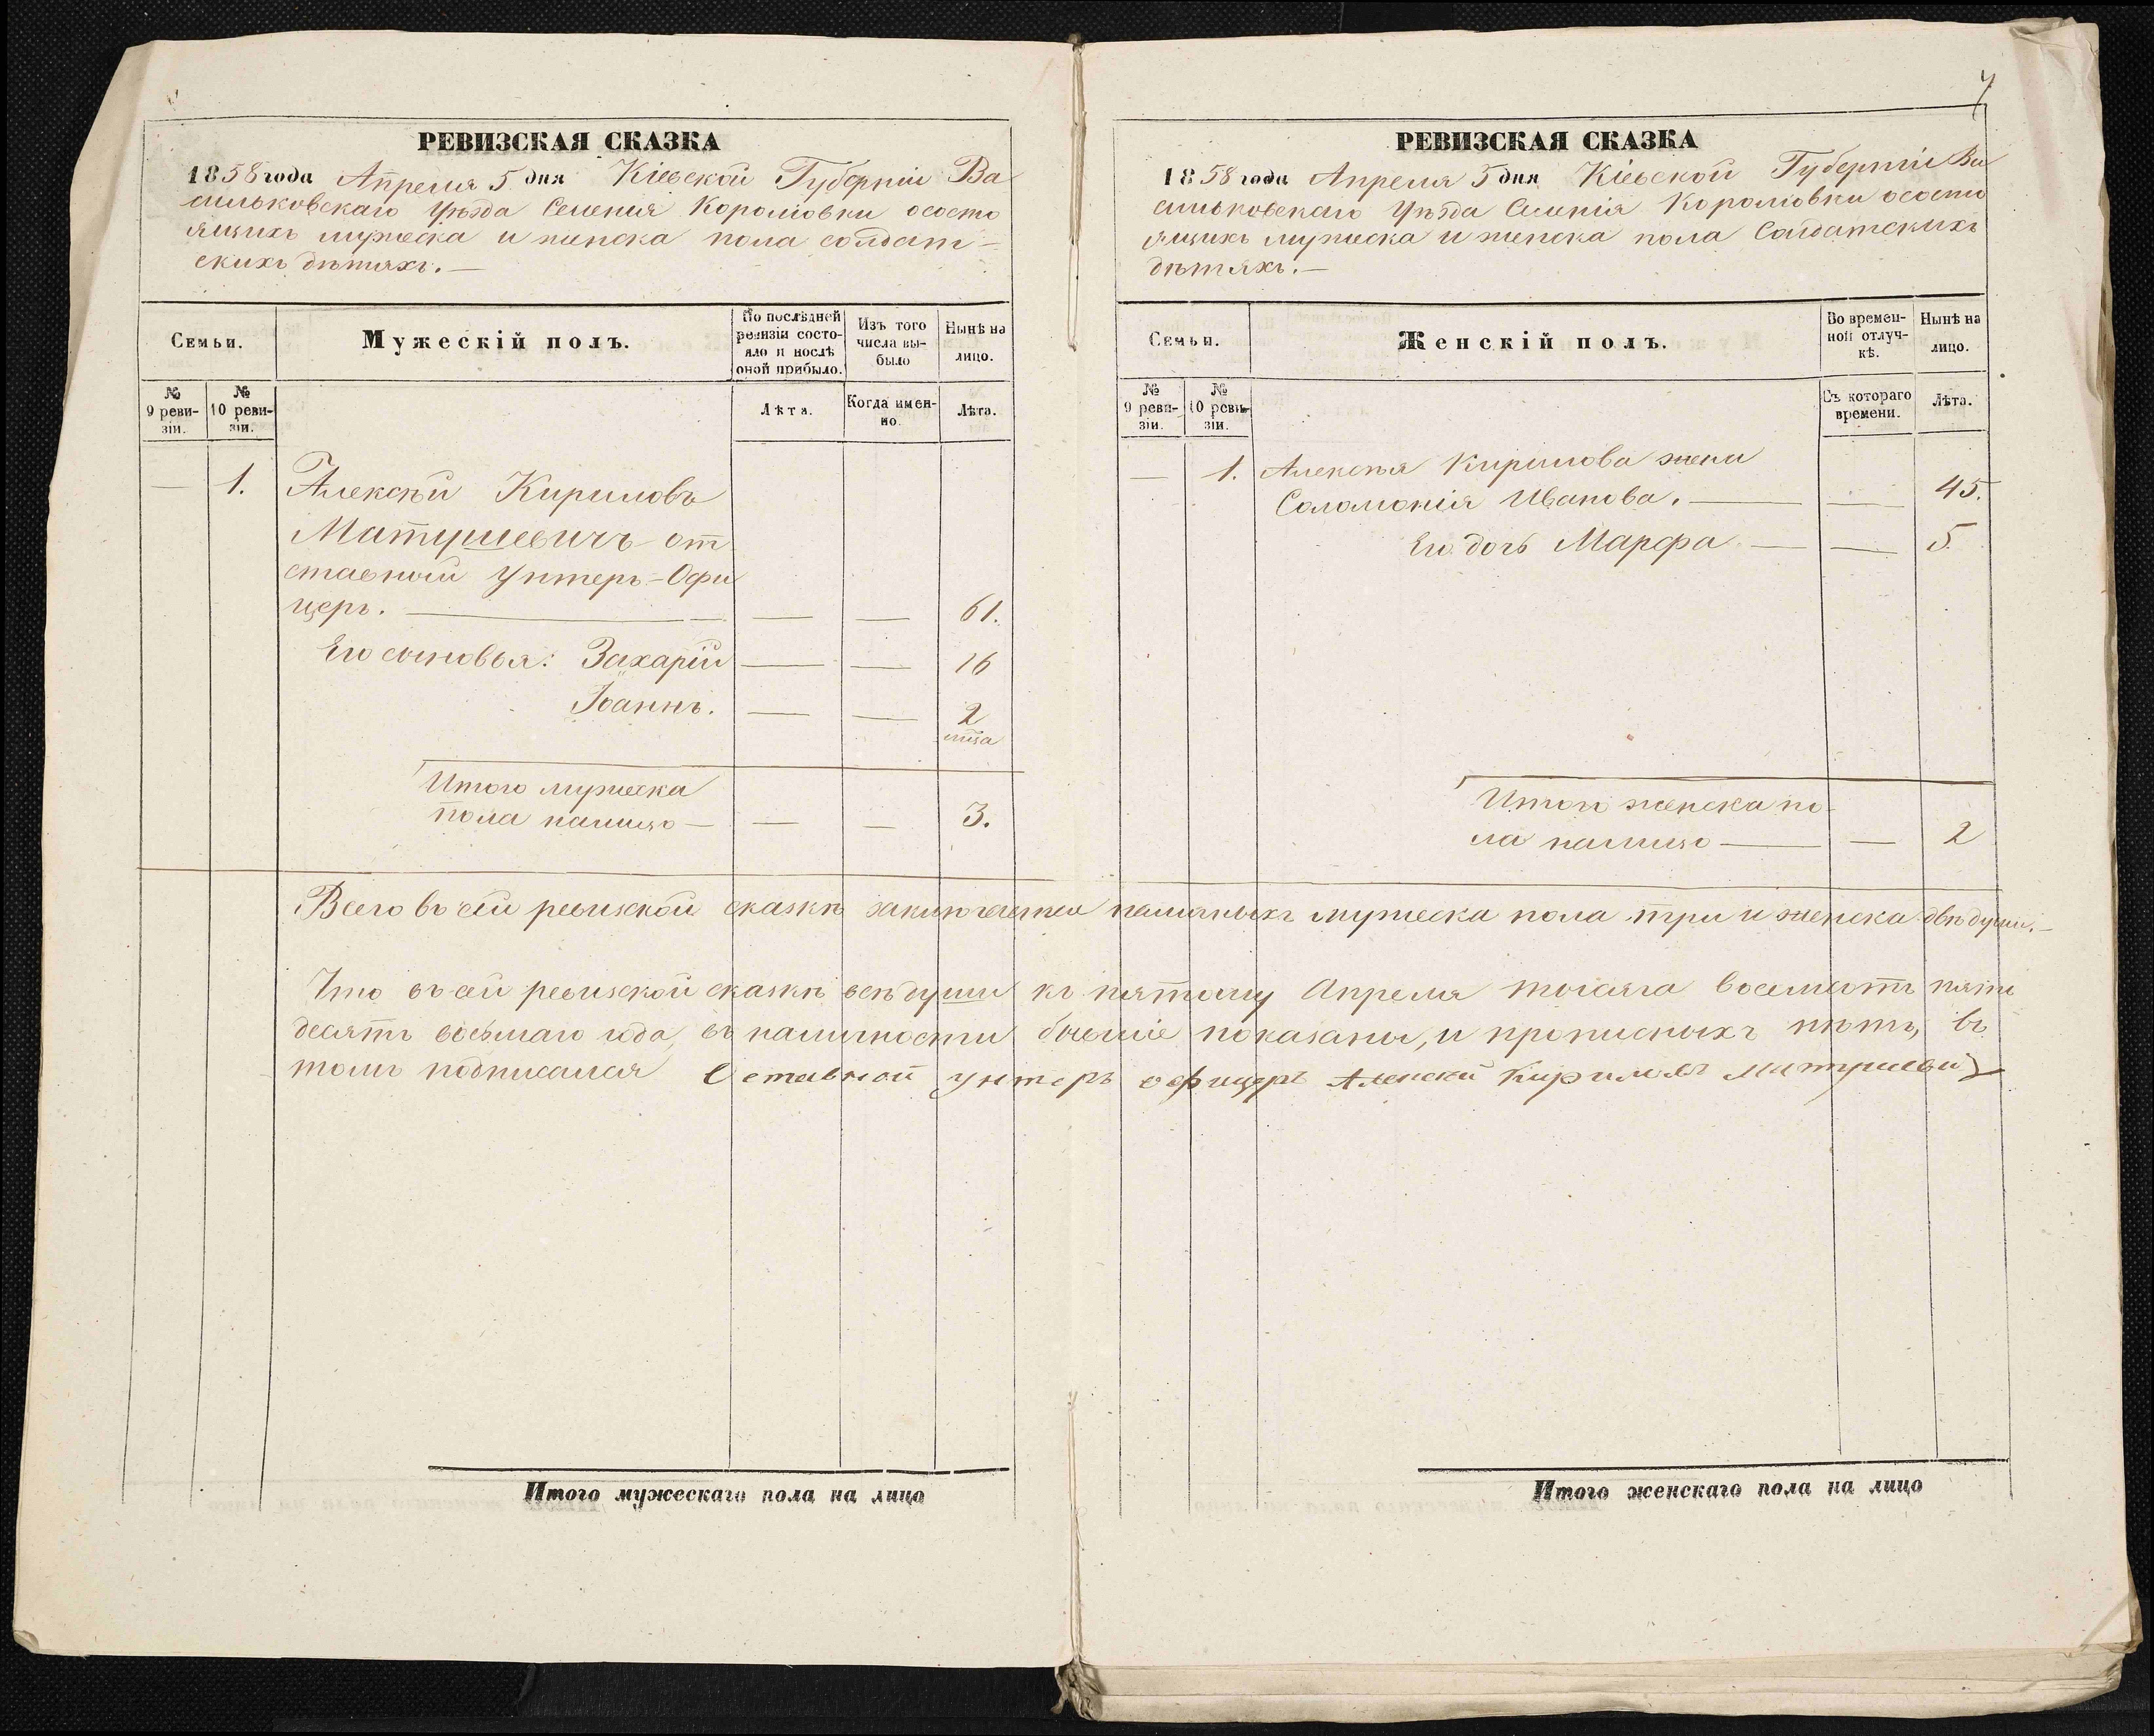 РЕВИЗСКАЯ СКАЗКА
1858 года Апреля 5 дня Кіевской Губерніи Ва
сильковскаго Уѣзда Селенія Королювки осостo
ящихъ мужеска и женска пола солдат-
скихъ дѣтяхъ.—
Семьи.
Мужескій полъ.
По послѣдней ревизіи состо-
яло и послѣ оной прибыло.
Изъ того числа вы-
было
Нынѣ на лицо.
№ 9 реви-
зіи.
№ 10 реви-
зіи.
Лѣта.
Когда имен-
но.
Лѣта.
— 1. Алексѣй Кириловъ
Матушевичъ от
ставной Унтеръ-Офи
церъ. — — — 61.
Его сыновья: Захарій — — 16
Іоаннъ. — — 2
Итого мужеска
пола налицо — — — 3.
Итого мужескаго пола на лицо
7
РЕВИЗСКАЯ СКАЗКА
1858 года Апреля 5 дня Кіевской Губерніи Ва
сильковскаго Уѣзда Селенія Королювки осостo
ящихъ мужеска и женска пола Солдатскихъ
дѣтяхъ.—
Семьи.
Женскій полъ.
Во времен-
ной отлуч-
кѣ.
Нынѣ на лицо.
№ 9 реви-
зіи.
№ 10 реви-
зіи.
Съ котораго времени.
Лѣта.
— 1. Алексѣя Кирилова жена
Соломонія Иванова. — — 45.
Его дочь Марфа — — 5.
Итого женска по-
ла налицо — — 2
Всего въ сей ревизской сказкѣ заключается наличныхъ мужеска пола три и женска двѣ души.—
Что въ сей ревизской сказкѣ всѣ души къ пятому Апреля тысяча восемьсотъ пять
десятъ восьмаго года, въ наличности бывшіе показаны, и прописныхъ нѣтъ, въ
томъ подписался Оставной унтеръ офицеръ Алексей Кириловъ Матушевичъ
Итого женскаго пола на лицо